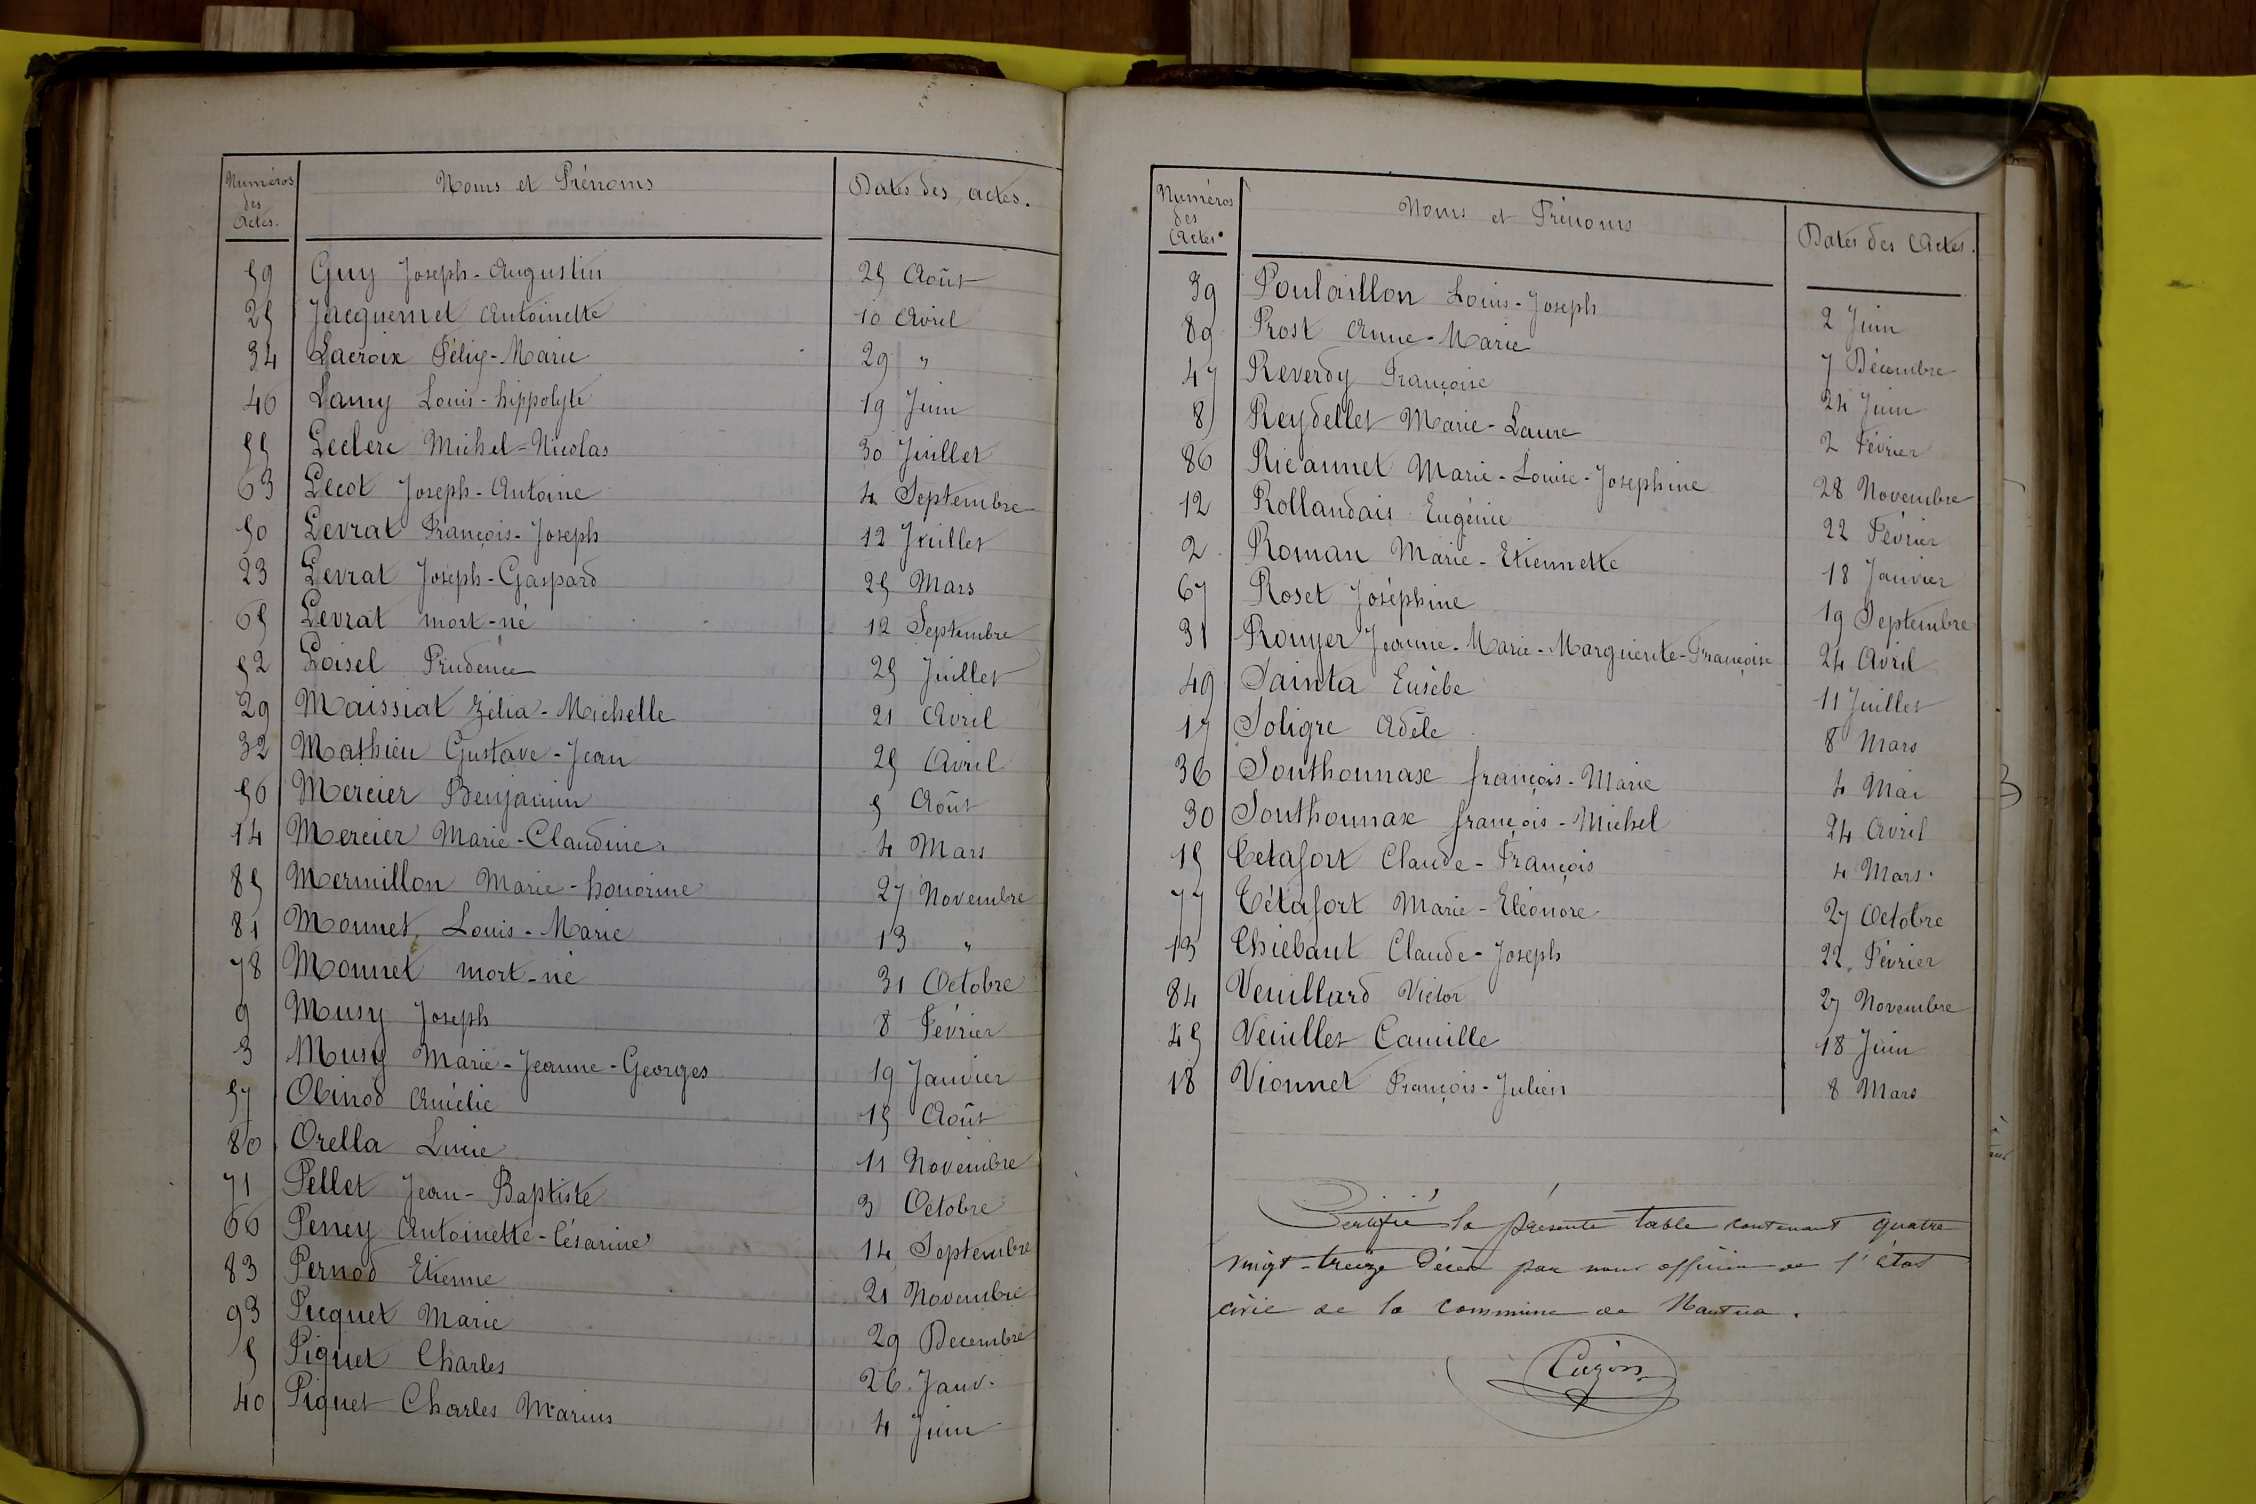 Numéros
des
Actes.
Noms et Prénoms
Dates des actes.
59 Guy Joseph-Augustin 25 Août
25 Jacquemet Antoinette 10 Avril
34 Lacroix Félix-Marie 29 "
46 Lamy Louis-hippolyte 19 Juin
55 Leclerc Michel-Nicolas 30 Juillet
63 Lecot Joseph-Antoine 4 Septembre
50 Levrat François-Joseph 12 Juillet
23 Levrat Joseph-Gaspard 25 Mars
65 Levrat mort-né 12 Septembre
52 Loisel Prudence 25 Juillet
29 Maissiat Zélia-Michelle 21 Avril
32 Mathieu Gustave-Jean 25 Avril
56 Mercier Benjamin 5 Août
14 Mercier Marie-Claudine 4 Mars
85 Mermillon Marie-honorine 27 Novembre
81 Monnet Louis-Marie 13 "
78 Monnet mort-né 31 Octobre
9 Musy Joseph 8 Février
3 Musy Marie-Jeanne-Georges 19 Janvier
57 Obinod Amélie 15 Août
80 Orella Lucie 11 Novembre
71 Pellet Jean-Baptiste 3 Octobre
66 Peney Antoinette-Césarine 14 Septembre
83 Pernod Etienne 21 Novembre
93 Picquet Marie 29 Decembre
5 Piquet Charles 26 Janv.
40 Piquet Charles Marius 4 Juin
Numéros
des
Actes
Noms et Prénoms
Dates des Actes.
39 Poulaillon Louis-Joseph 2 Juin
89 Prost Anne-Marie 7 Décembre
47 Reverdy Françoise 24 Juin
8 Reydellet Marie-Laure 2 Février
86 Ricannet Marie-Louise-Josephine 28 Novembre
12 Rollandais Eugénie 22 Février
2 Roman Marie-Etiennette 18 Janvier
67 Roset Joséphine 19 Septembre
31 Rouyer Jeanne-Marie-Marguerite-Françoise 24 Avril
49 Sainta Eusèbe 11 Juillet
17 Soligre Adèle 8 Mars
36 Southonnax françois-Marie 4 Mai
30 Southonnax françois-Michel 24 Avril
15 Tetafort Claude-François 4 Mars.
77 Tétafort Marie-Eléonore 27 Octobre
13 Thiébaut Claude-Joseph 22 Février
84 Veuillard Victor 27 Novembre
45 Veuillet Camille 18 Juin
18 Vionnet François-Julien 8 Mars
Certifié la présente table contenant quatre
vingt-treize décès par nous officier de l'état
civil de la commune de Nantua.